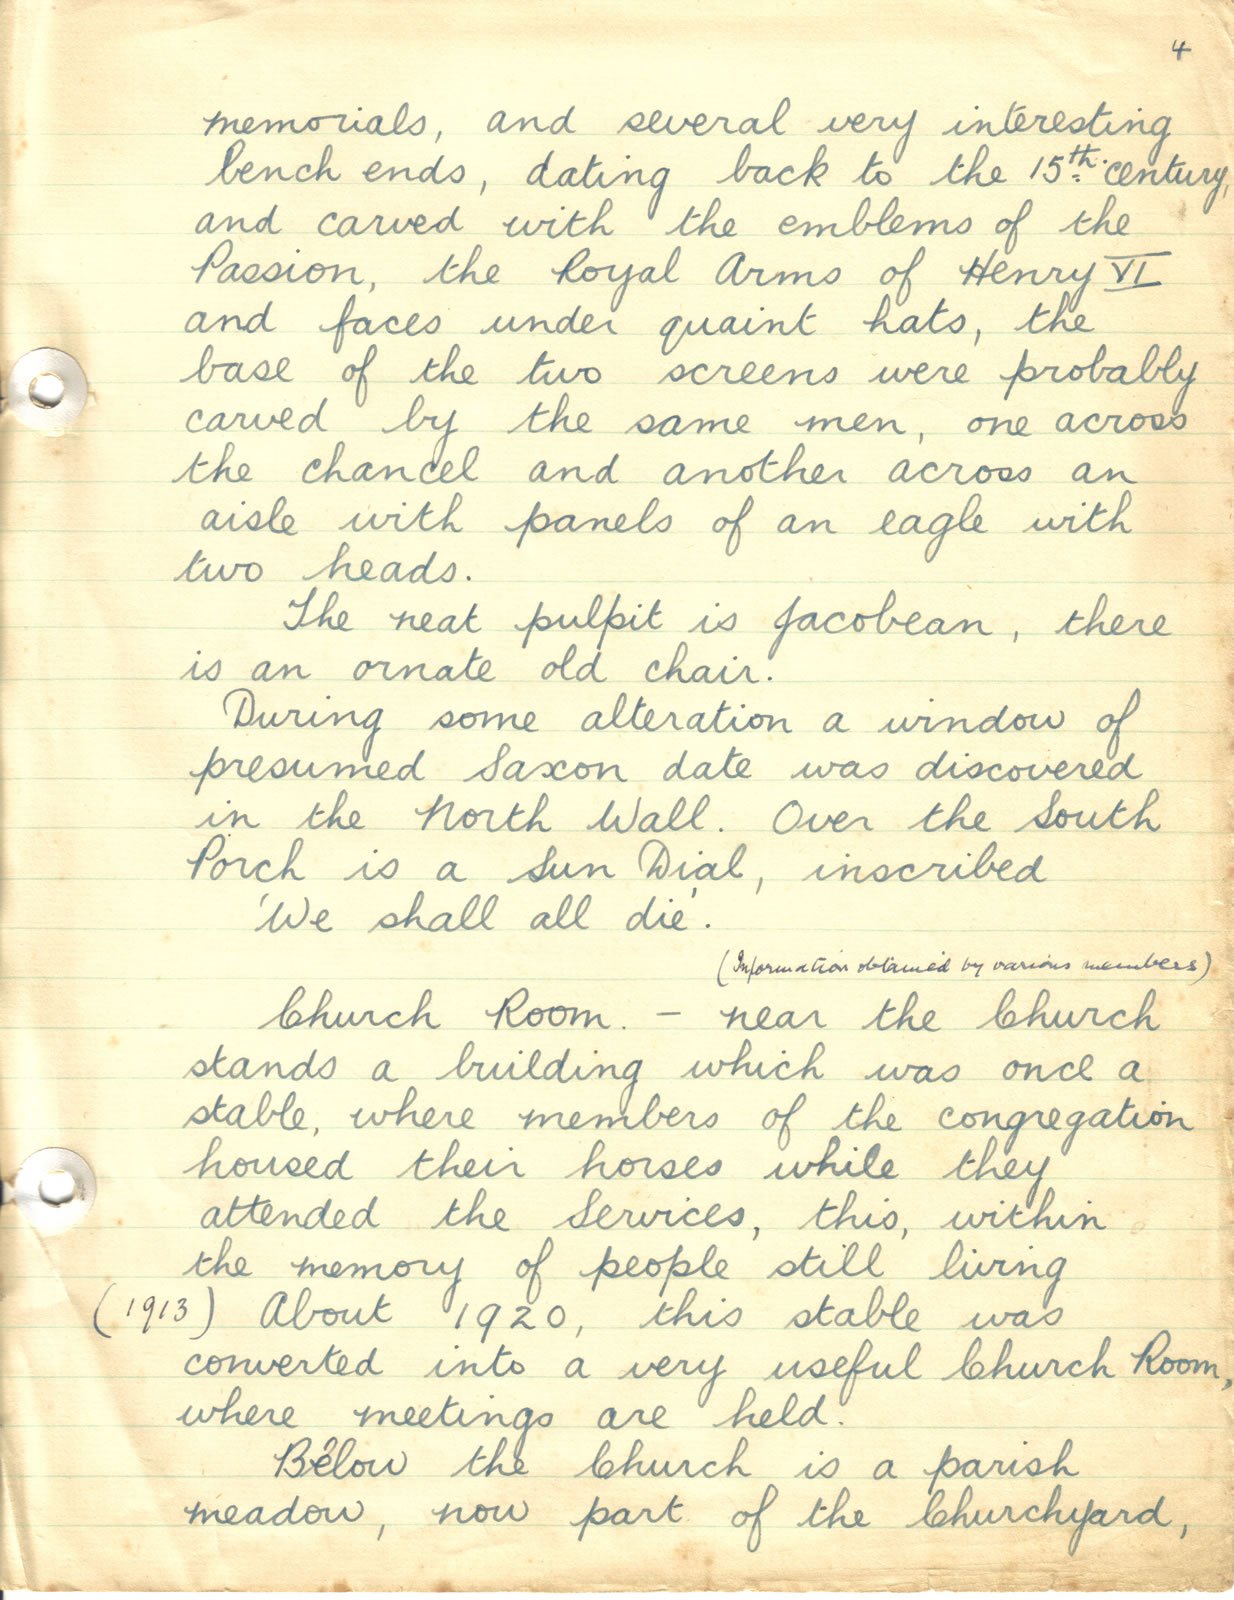 4
memorials, and several very interesting
bench ends, dating back to the 15th. century,
and carved with the emblems of the
Passion, the Royal Arms of Henry VI
and faces under quaint hats, the
base of the two screens were probably
carved by the same men, one across
the chancel and another across an
aisle with panels of an eagle with
two heads.
The neat pulpit is Jacobean, there
is an ornate old chair.
During some alteration a window of
presumed Saxon date was discovered
in the North Wall. Over the South
Porch is a Sun Dial, inscribed
'We shall all die'.
(Information obtained by various members)
Church Room. - near the Church
stands a building which was once a
stable, where members of the congregation
housed their horses while they
attended the Services, this, within
the memory of people still living
(1913) About 1920, this stable was
converted into a very useful Church Room,
where meetings are held.
Below the Church is a parish
meadow, now part of the Churchyard,